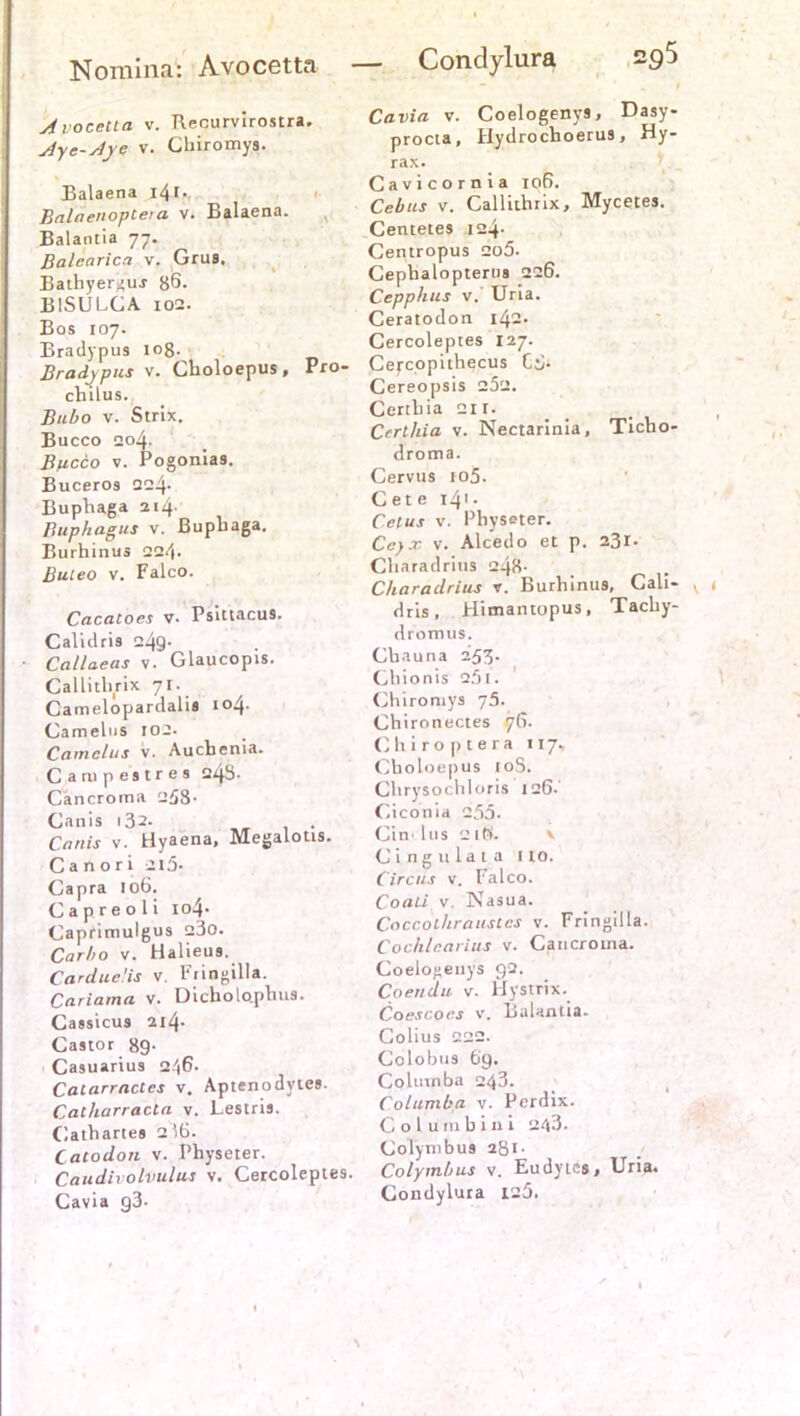 Nomina: Avocetta — Condylura 295
Avocetta v. Recurvirostra.
Aye-Aye v. Chiromys.
Balaena 141.
Balaenoptera v. Balaena.
Balantia 77.
Balearica v. Grus.
Bathyergus 86.
BISULCA 102.
Bos 107.
Bradypus 108.
Bradypus v. Choloepus, Pro-
chilus.
Bubo v. Strix.
Bucco 204.
Bucco v. Pogonias.
Buceros 224.
Buphaga 214.
Buphagus v. Buphaga.
Burhinus 224.
Buteo v. Falco.
Cacatoes v. Psittacus.
Calidris 249.
Callaeas v. Glaucopis.
Callithrix 71.
Camelopardalis 104.
Camelus 102.
Camelus v. Auchenia.
Campestres 248.
Cancroma 258.
Canis 132.
Canis v. Hyaena, Megalotis.
Canori 215.
Capra 106.
Capreoli 104.
Caprimulgus 230.
Carbo v. Halieus.
Carduelis v. Fringilla.
Cariama v. Dicholophus.
Cassicus 214.
Castor 89.
Casuarius 246.
Catarractes v. Aptenodytes.
Catharracta v. Lestris.
Cathartes 236.
Catodon v. Physeter.
Caudivolvulus v. Cercoleptes.
Cavia 93.
Cavia v. Coelogenys, Dasy-
procta, Hydrochoerus, Hy-
rax.
Cavicornia 106.
Cebus v. Callithrix, Mycetes.
Centetes 124.
Centropus 205.
Cephalopterus 226.
Cepphus v. Uria.
Ceratodon 142.
Cercoleptes 127.
Cercopithecus
Cereopsis 252.
Certhia 211.
Certhia v. Nectarinia, Ticho-
droma.
Cervus 105.
Cete 141.
Cetus v. Physeter.
Ceyx v. Alcedo et p. 231.
Charadrius 248.
Charadrius v. Burhinus, Cali-
dris, Himantopus, Tachy-
dromus.
Chauna 253.
Chionis 251.
Chiromys 75.
Chironectes 76.
Chiroptera 117.
Choloepus 108.
Chrysochloris 126.
Ciconia 255.
Cinclus 218.
Cingulata 110.
Circus v. Falco.
Coati v. Nasua.
Coccothraustes v. Fringilla.
Cochlearius v. Cancroma.
Coelogenys 92.
Coendu v. Hystrix.
Coescoes v. Balantia.
Colius 222.
Colobus 69.
Columba 243.
Columba v. Perdix.
Columbini 243.
Colymbus 281.
Colymbus v. Eudytes, Uria.
Condylura 125.